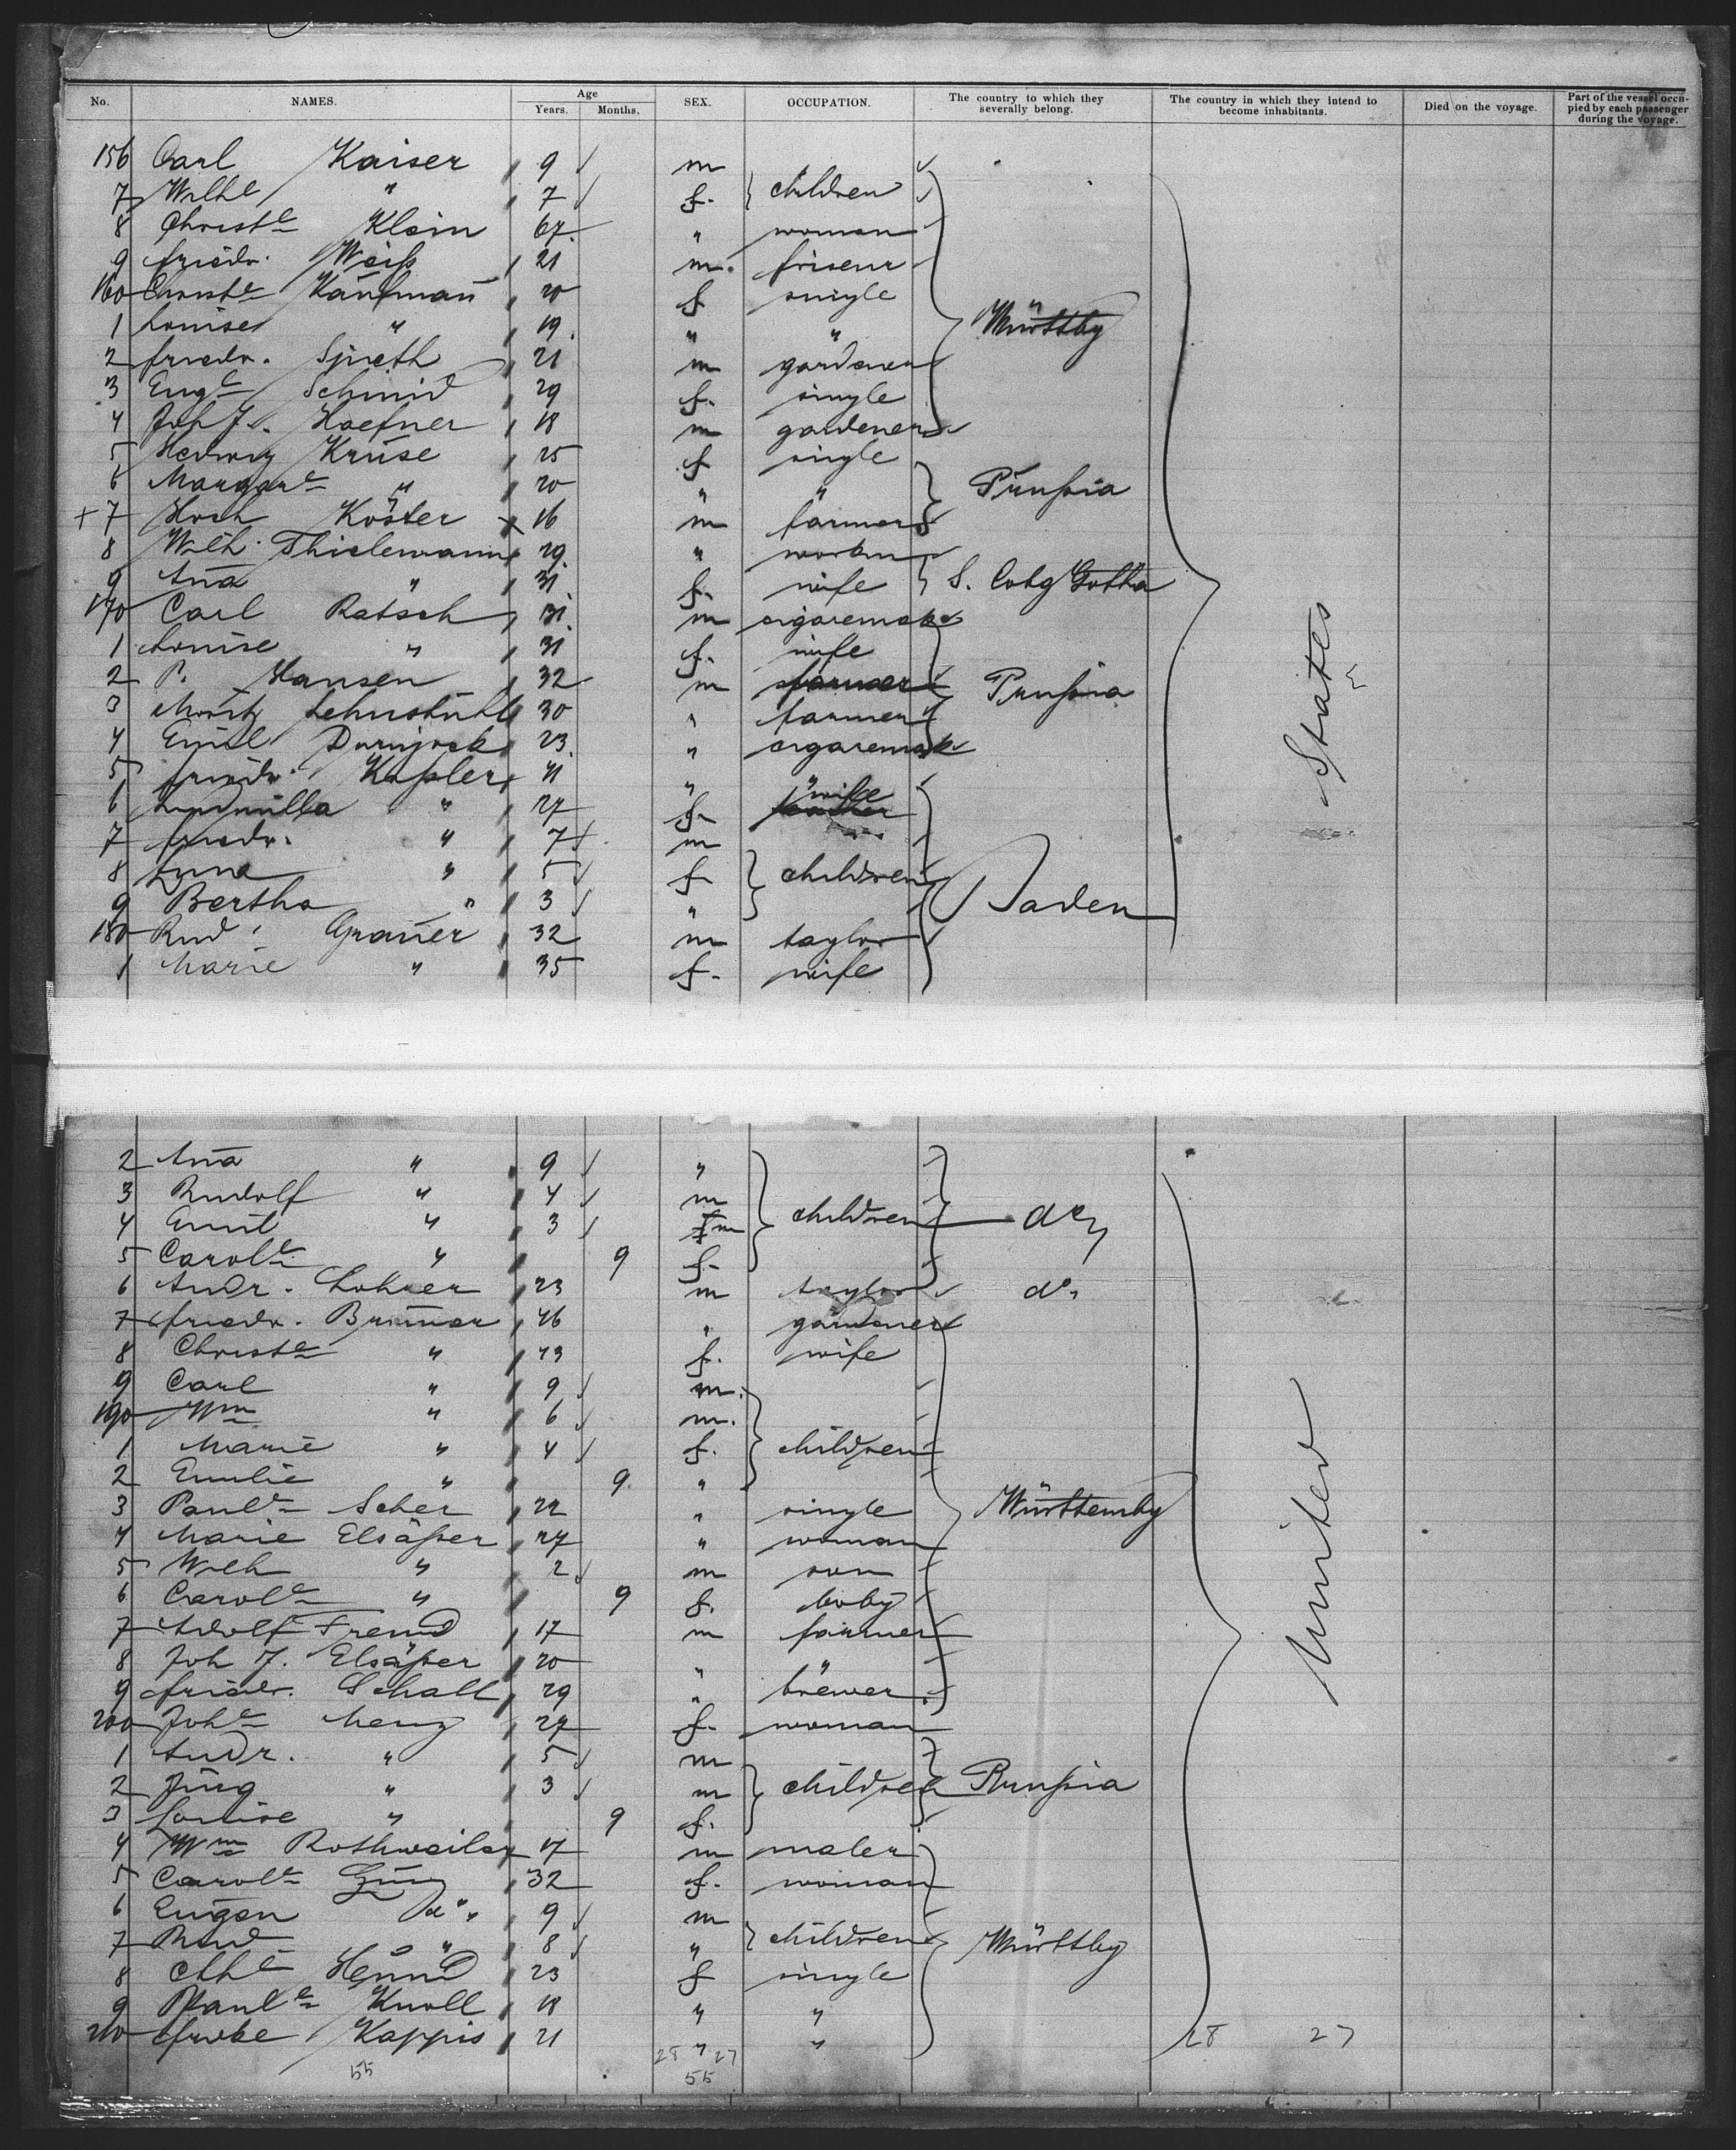 No. NAMES. Age Years. Months. SEX. OCCUPATION. The country to which they severally belong. The country in which they intend to become inhabitants. Died on the voyage. Part of the vessel occupied by each passenger during the voyage.
156 Carl Kaiser 9 m
7 Wilhe " 7 f. children
8 Christe Klein 67 " woman
9 Friedr. Weiß 21 m. friseur
160 Christe Kaufmañ 20 f single Württbg
1 Louise " 19 " "
2 Friedr. Spieth 21 m gardener
3 Euge Schmid 29 f. single
4 Joh J. Haefner 18 m gardener
5 Hedwig Kruse 25 f single
6 Margare " 20 " " Prußia
+ 7 Köster x 16 m farmer
8 Wilh. Thielemann 29 "
9 Aña " 31 f. wife S. Cobg Gotha
170 Carl Ratsch 31 m cigaremak
1 Louise " 31 f. wife
2 P. Hansen 32 m farmer Prußia
3 Moritz Lehnstuhl 30 " farmer
4 Emil 23 " cigaremak
5 Friedr. Kaßler 41 " "
6 Ludmilla " 27 f. wife
7 Friedr. " 7 m
8 " 5 f children
9 Bertha " 3 " Baden
180 Rud. Grauer 32 m taylor
1 Marie " 35 f. wife
States
2 Aña " 9 "
3 Rudolf " 4 m
4 Emil " 3 f m children do
5 Carole " 9 f.
6 Andr. Lohrer 23 m taylor do
7 Friedr. 46 " gardener
8 Christe " 43 f. wife
9 Carl " 9 m.
190 Wm " 6 m.
1 Marie " 4 f. children
2 Emilie " 9 "
3 Paule Scher 22 " single Württembg
4 Marie Elsäßer 27 " woman
5 Wilh " 2 m son
6 Carole " 9 f. baby
7 Adolf Freund 17 m farmer
8 Joh J. Elsäßer 20 " "
9 Friedr. Schall 29 " brewer
200 Johe Menz 27 f. woman
1 Andr. " 5 m
2 Jürg " 3 m children Prußia
3 Louise " 9 f.
4 Wm Rothweiler 17 m maler
5 Carole 32 f. woman
6 Eugen do 9 m
7 " 8 " children Württbg
8 23 f single
9 Paule Knoll 18 " "
210 Kappis 21 " "
United
28 27
28 27
55
55